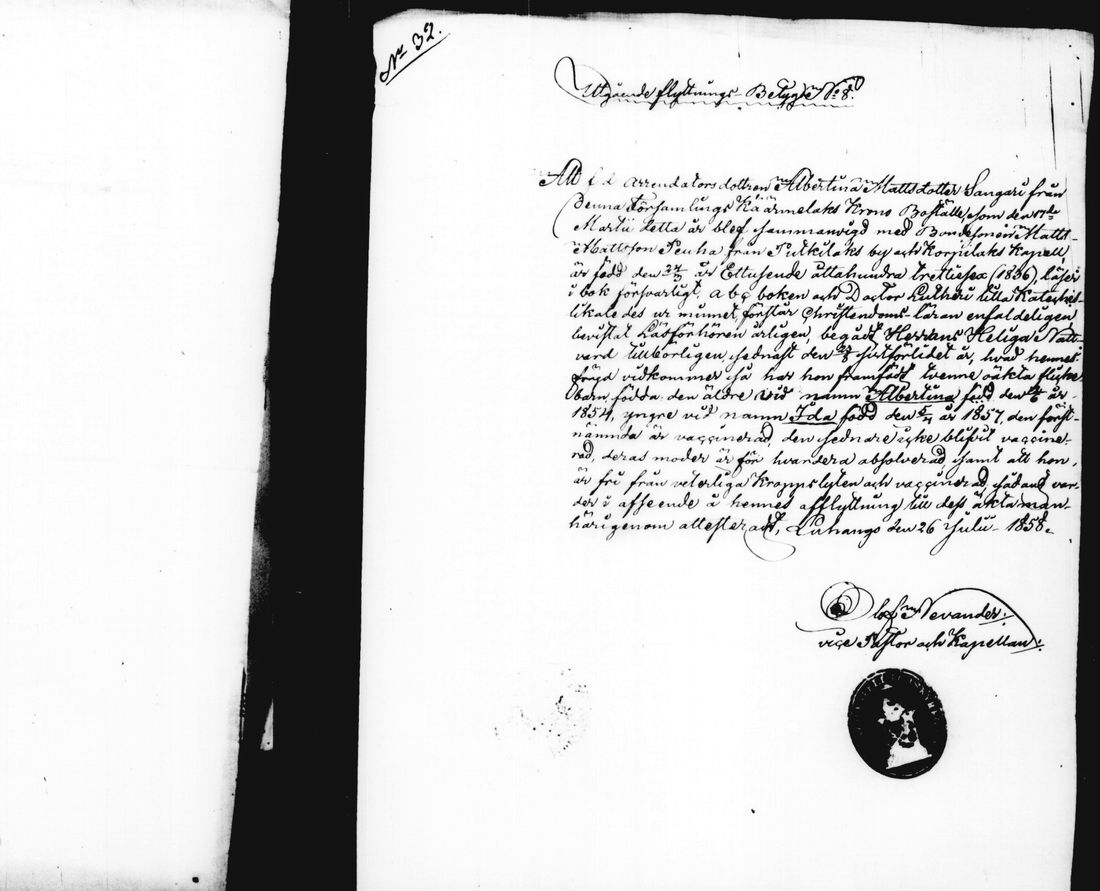 No 32.
Utgående flyttnings-Betyg No 8.
Att f d arrendators dottren Albertina Mattsdotter Sangari från
denna Församlings Käärmelaks Krono Boställe, som den 17de
Martii detta år blef sammanvigd med Bondesonen Matts
Mattsson Peuha från Putkilaks by och Korpilaks Kapell,
är född den 24/3 år Ettusende åttahundra trettiosex (1836), läser
i bok försvarligt, abc boken och Doctor Lutheri lilla Kateches
likaledes ur minnet, förstår Christendoms-läran enfaldeligen
bevistat Läsförhören årligen, begått Herrans Heliga Natt-
vard tillbörligen, sednast den sistförlidet år, hvad hennes
frägd vidkommer så har hon framfödt tvenne oäkta flicke
barn, födda: den äldre vid namn Albertina född den år
1854, yngre vid namn Ida född den 5/4 år 1857, den först-
nämnda är vaccinerad, den sednare icke blifvit vaccine-
rad, deras moder är för hvardera absolverad, samt att hon
är fri från veterliga Kroppslyten och vaccinerad, sådant var-
der i afseende å hennes afflyttning till dess äkta man
härigenom attesteradt, Luhango den 26 Julii 1858.
Olof Nevander.
vice Pastor och Kapellan.